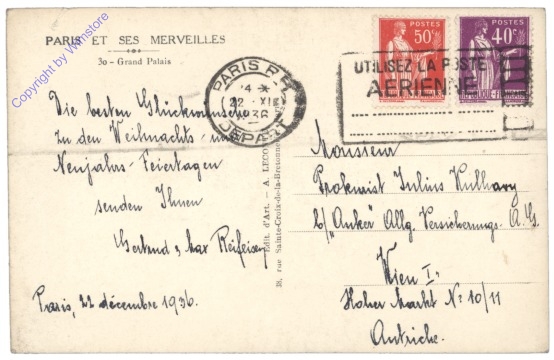 PARIS ET SES MERVEILLES
30 - Grand Palais
Copyright by Wunstore
Die besten Glückwünsche
zu den Weihnachts- und
Neujahrs-Feiertagen
senden Ihnen
Gertrud & Max
Paris, 22 décembre 1936.
Edit. d'Art. - A. LECONTE
38, rue Sainte-Croix-de-la-Bretonnerie
PARIS R.P.
22 - XII
1936
DEPART
POSTES
50c
POSTES
40c
UTILISEZ LA POSTE
AERIENNE
Monsieur
Prokurist Julius Kulhavy
b/ "Anker" Allg. Versicherungs A. G.
Wien I.
Hoher Markt No 10/11
Autriche.